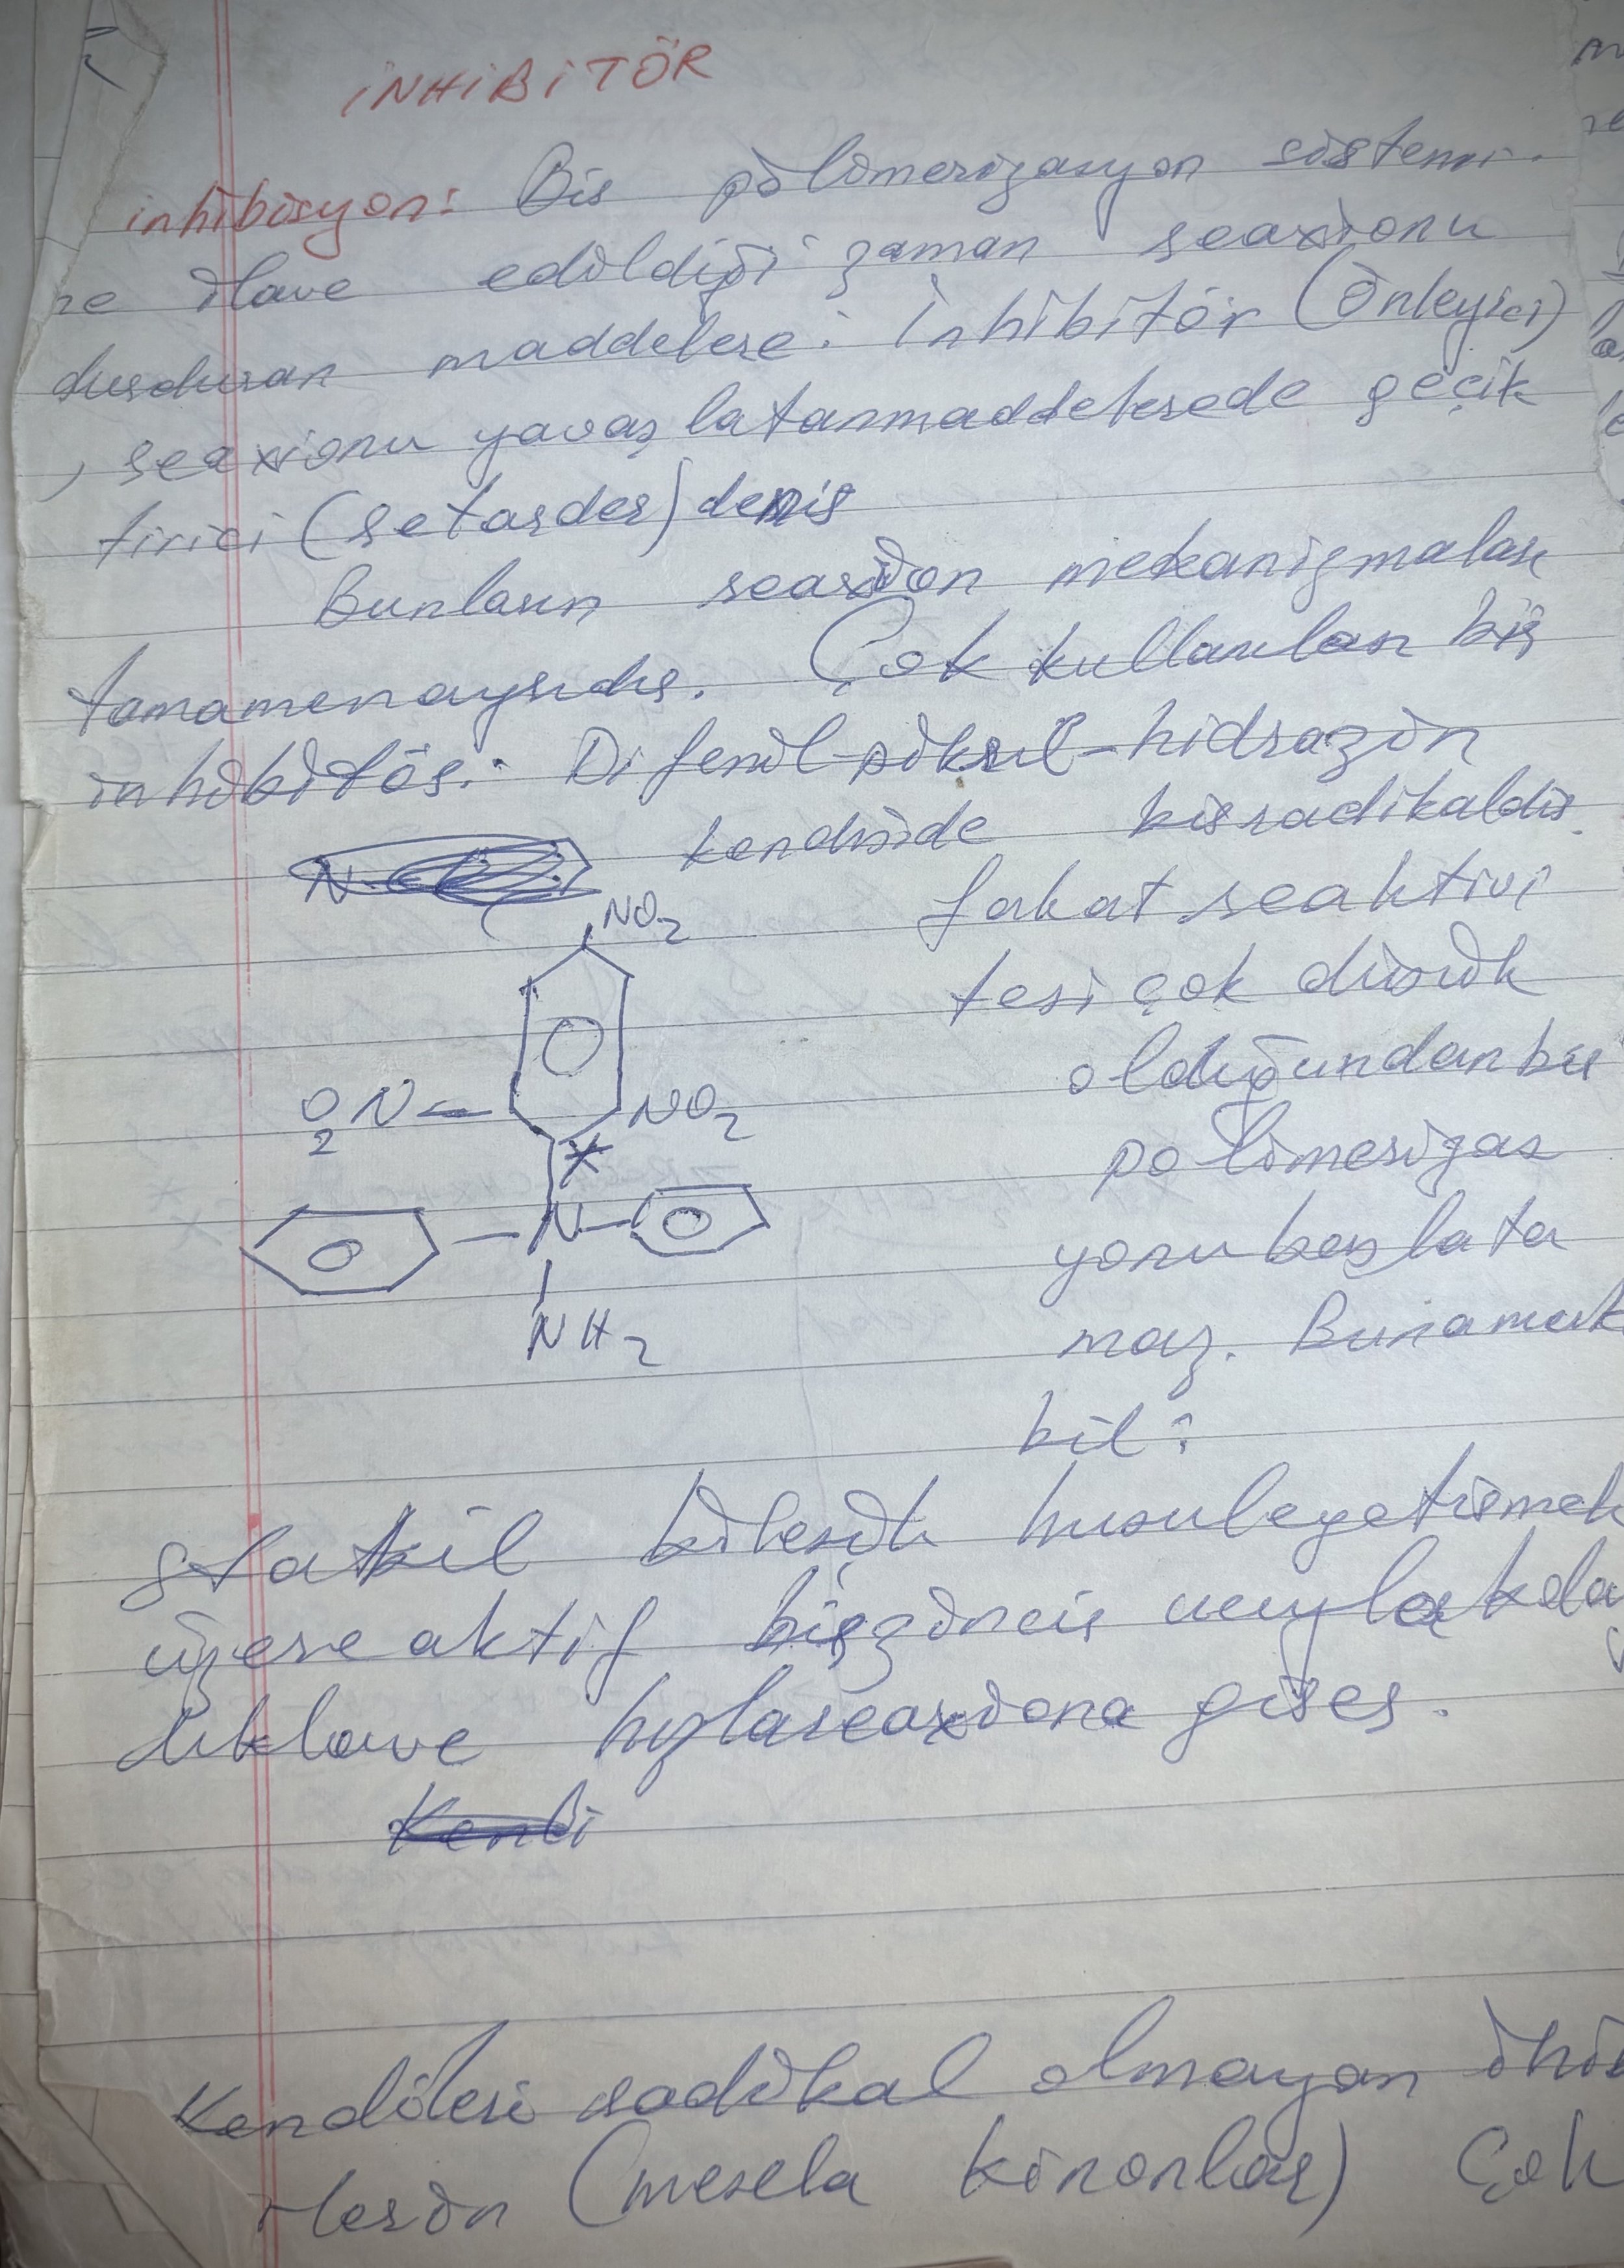 İNHİBİTÖR
inhibisyon: Bir polimerizasyon sistemi-
ne ilave edildiği zaman reaxionu
durduran maddelere: İnhibitör (önleyici)
, reaxionu yavaşlatanmaddelerede geçik
tirici (retarder) denir
Bunların reaxion mekanizmaları
tamamenaynıdır. Çok kullanılan bir
inhibitör: Difenil-pikril-hidrazin
kendiside birradikaldir.
fakat reaktivi
NO2
tesi çok düşük
olduğundan bu
O2N NO2
polimerizas
*
yonu başlata
N
maz. Bunamuk
NH2
bil:
stabil bileşik husulegetirmek
üzere aktif birzincir
ve hızlareaxiona girer.
Kendileri radikal olmayan
rlerin (mesela kinonlar) Çok